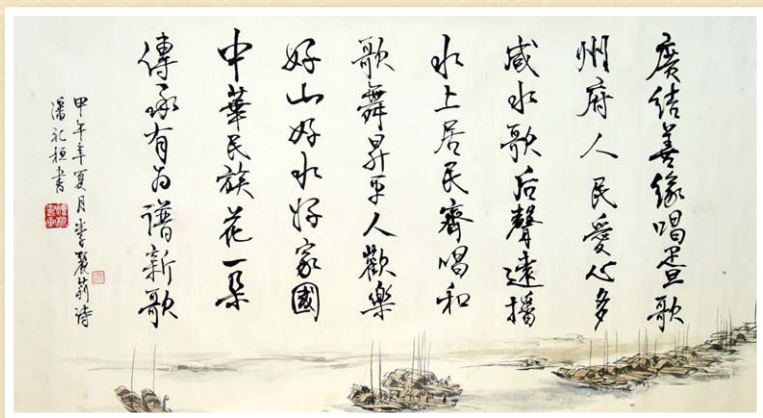 廣结善缘唱疍歌
州府人民愛心多
咸水歌后聲遠播
水上居民齊唱和
歌舞昇平人歡樂
好山好水好家國
中華民族花一朵
傳承有为譜新歌
甲午年夏月李麗莉诗
潘礼桓書